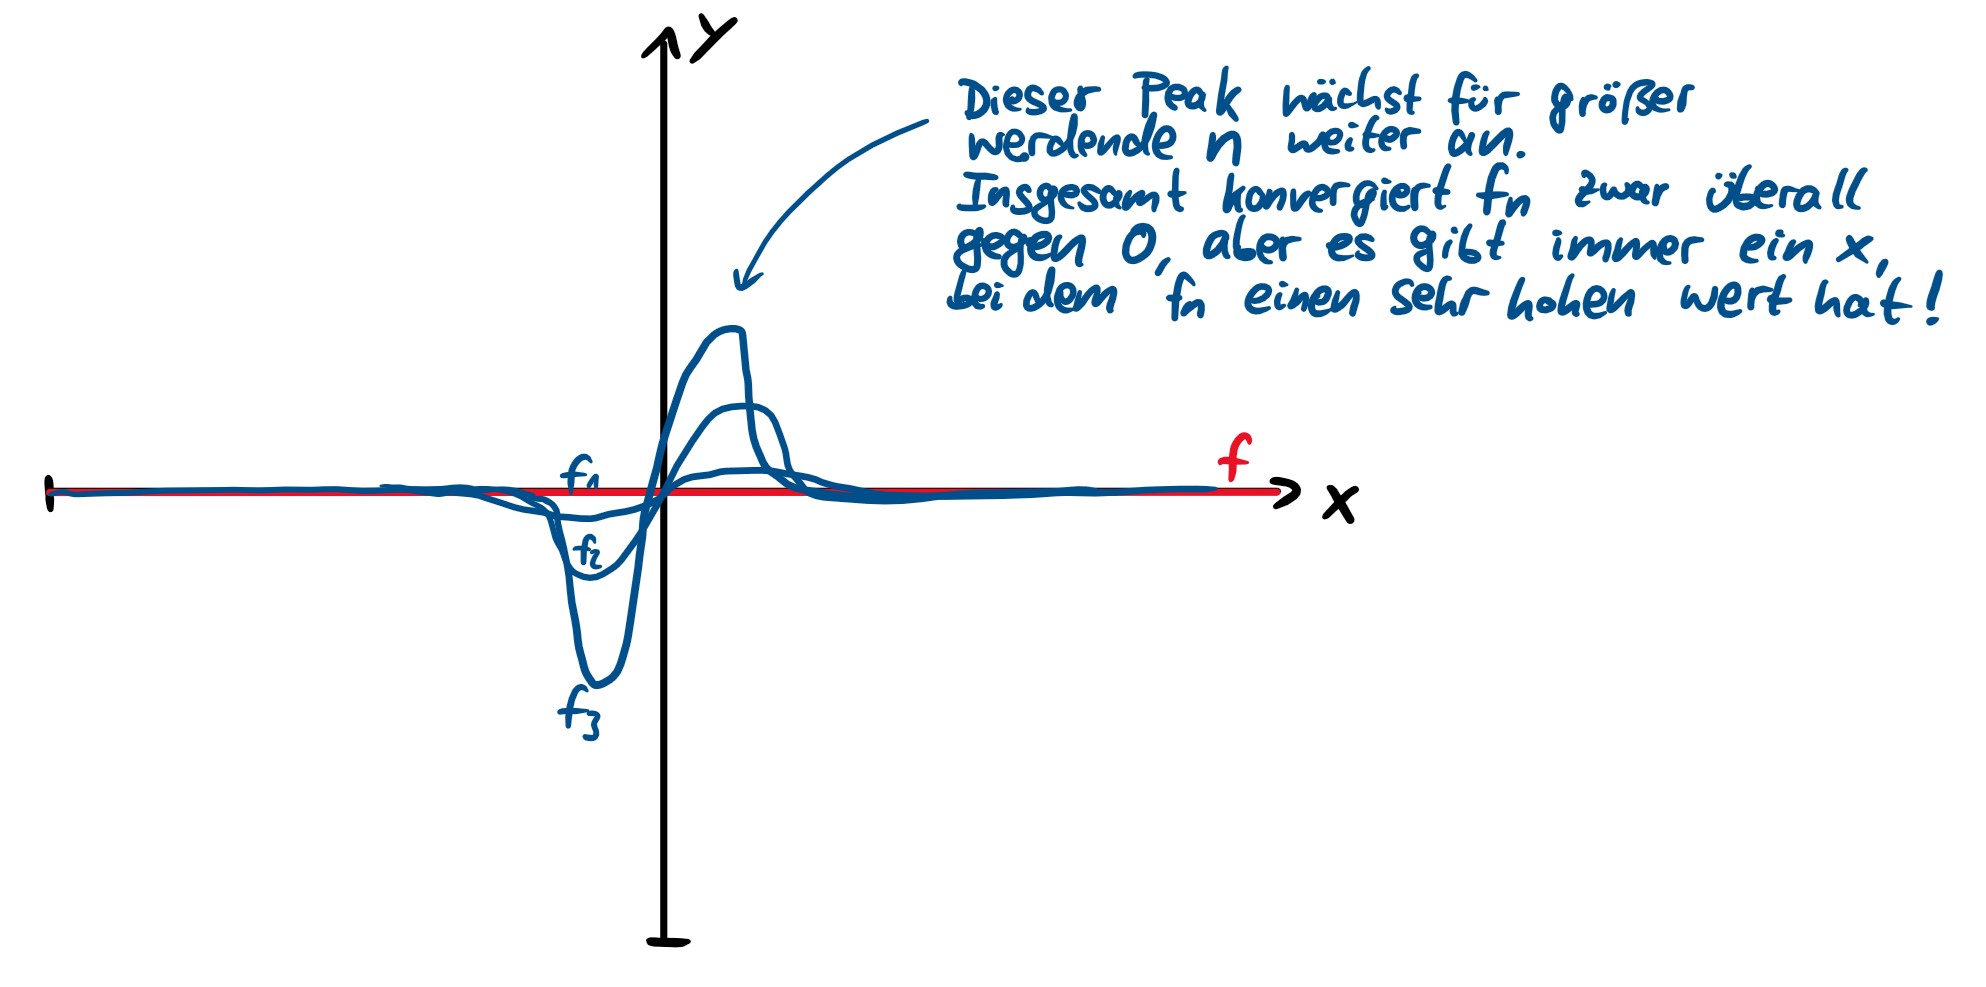 y
Dieser Peak wächst für größer
werdende n weiter an.
Insgesamt konvergiert fn zwar überall
gegen 0, aber es gibt immer ein x,
bei dem fn einen sehr hohen wert hat!
f
f1
x
f2
f3